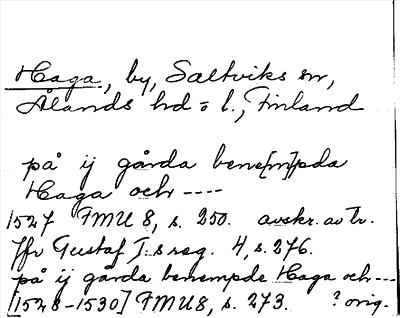 Haga, by, Saltviks sn,
Ålands hd o l., Finland
på ij gårda bene[m]pda
Haga och ----
1527 FMU 8, s. 250. avskr. av Tr.
Jfr Gustaf I:s reg. 4, s. 276.
på ij gårda benempde Haga och ---
[1528-1530] FMU 8, s. 273. ? orig.